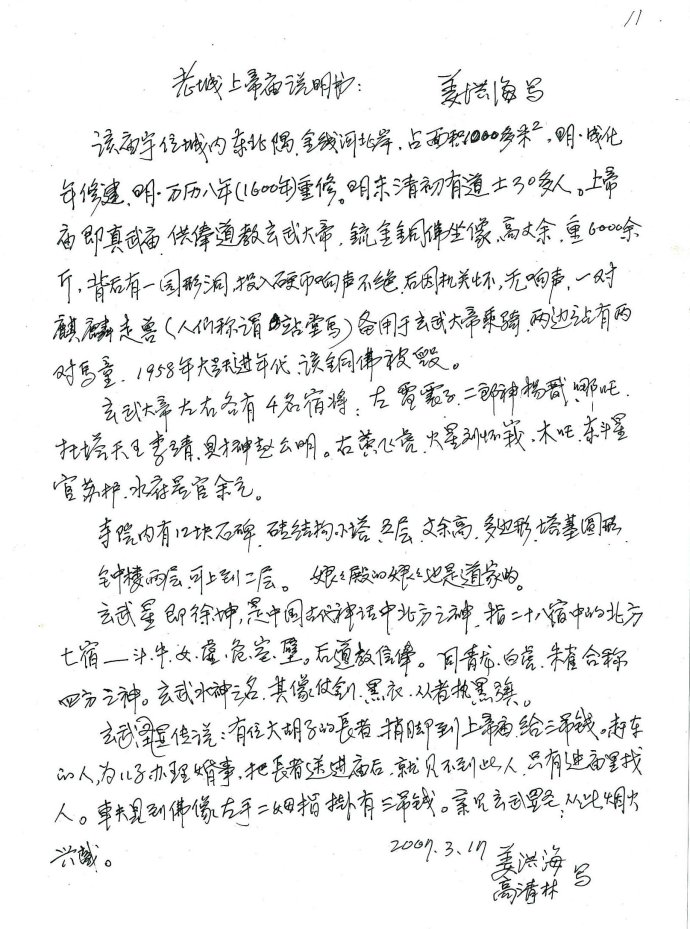 11
老城上帝庙说明书： 姜洪海写
该庙宇位城内东北隅，金线河北岸，占面积1000多米²，明·成化
年修建，明·万历八年(1600年)重修。明末清初有道士30多人。上帝
庙即真武庙，供俸道教玄武大帝，鎏金铜佛坐像，高丈余，重6000余
斤，背后有一园形洞，投入硬币响声不绝，后因机关坏，无响声，一对
麒麟走兽（人们称谓站堂马）备用于玄武大帝乘骑，两边站有两
对马童，1958年大跃进年代，该铜佛被毁。
玄武大帝左右各有4名宿将：左 雷震子，二郎神杨戬，哪吒，
托塔天王李靖，财神赵公明。右黄飞虎，火星刘怀，木吒，东斗星
官苏护，水府星官余元。
寺院内有12块石碑，砖结构小塔，五层，丈余高，多边形，塔基圆形
钟楼两层，可上到二层。 娘娘殿的娘娘也是道家的。
玄武星即徐坤，是中国古代神话中北方之神，指二十八宿中的北方
七宿——斗、牛、女、虚、危、室、壁。后道教信俸。同青龙、白虎、朱雀合称
四方之神。玄武水神之名，其像仗剑、黑衣，从者执黑旗。
玄武显传说：有位大胡子的長者，捎脚到上帝庙给三吊钱。赶车
的人，为儿子办理婚事，把長者送进庙后，就见不到此人，只有进庙里找
人。車夫見到佛像左手二姆指掛有三吊钱。亲见玄武显圣，从此烟火
兴盛。
2007.3.17 姜洪海
高清林 写